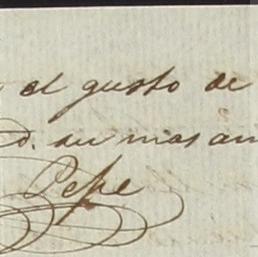 el gusto de
su mas am
Pepe